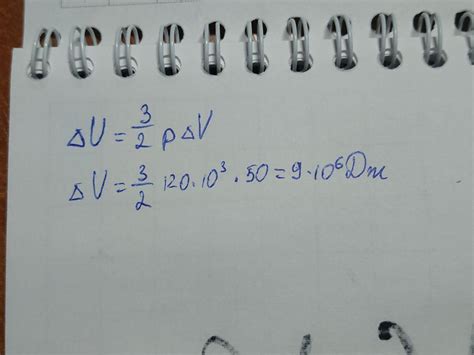 ΔU = 3/2 pΔV
ΔU = 3/2 120·10³·50 = 9·10⁶ Дж